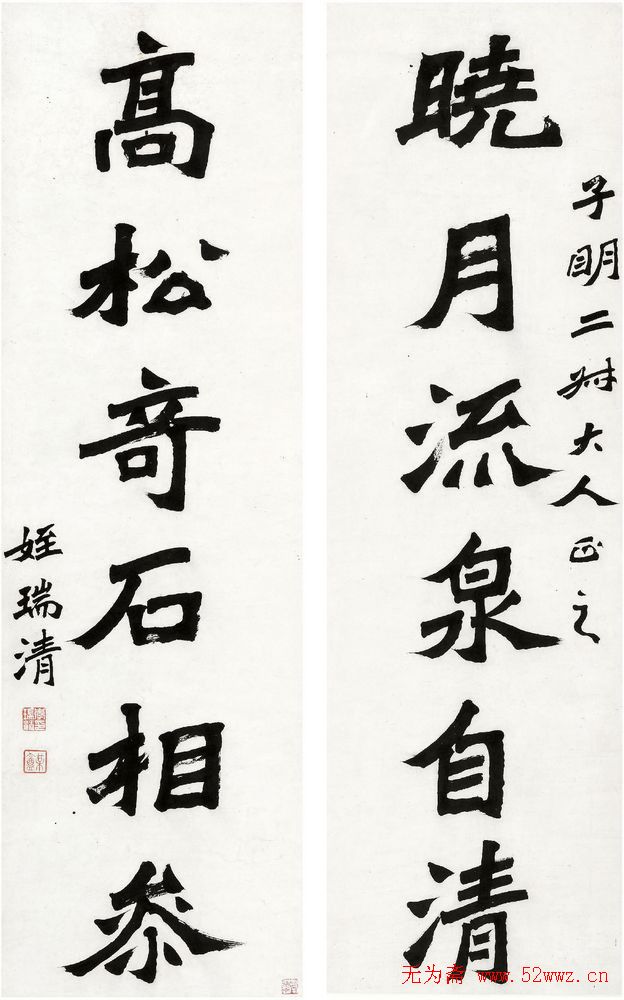 子明二叔大人正之
曉月流泉自清
髙松竒石相叅
姪瑞清
无为斋 www.52wwz.cn